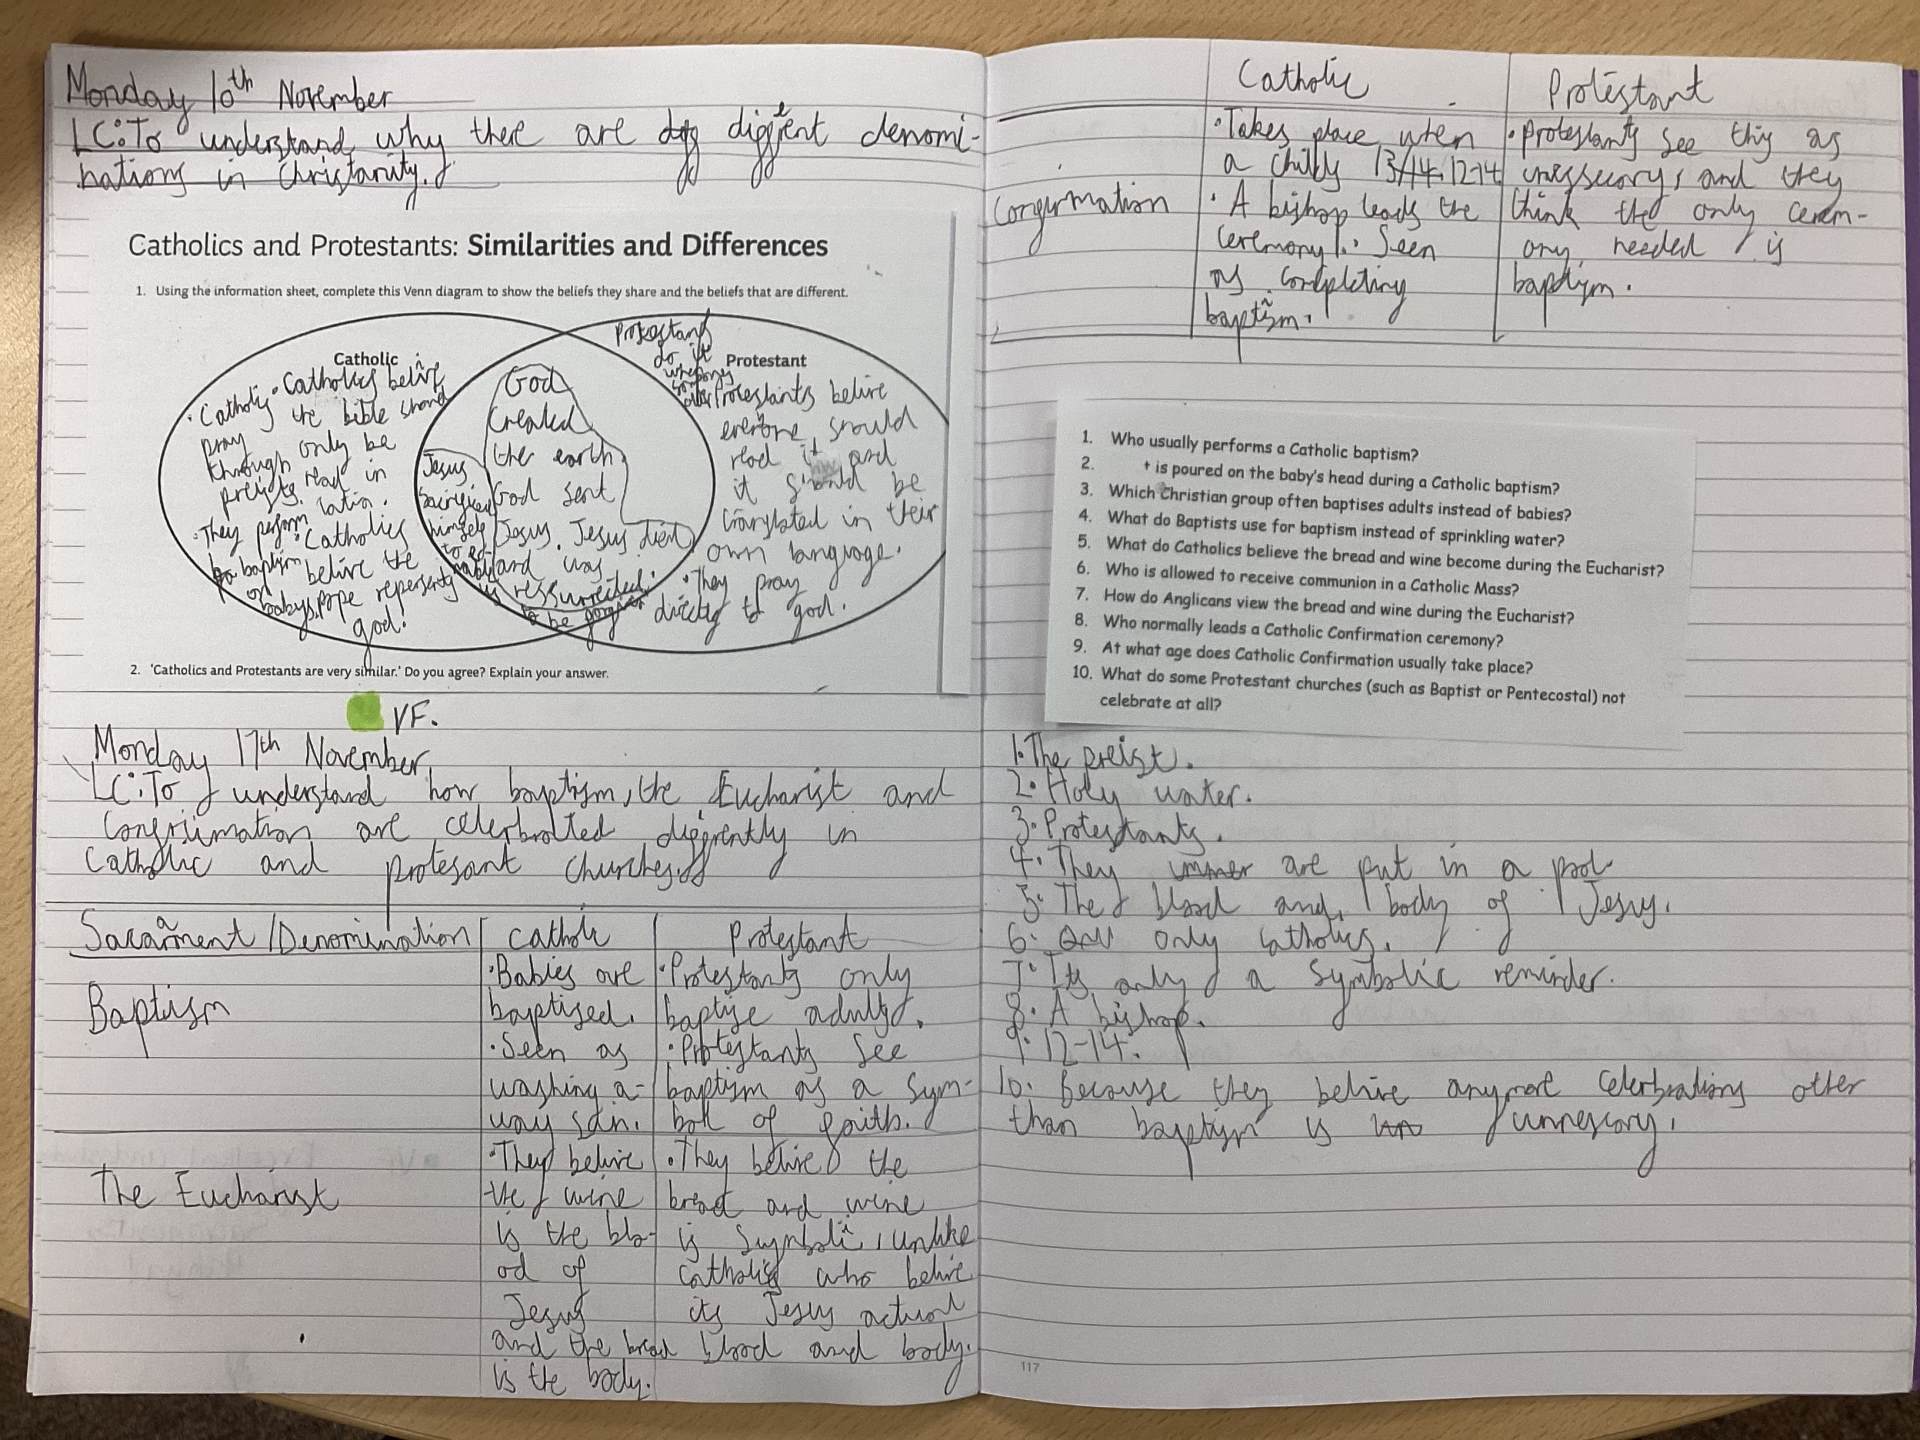 Monday 10th November
LC: To understand why there are digg diggerent denomi-
nations in Christianity.
Catholics and Protestants: Similarities and Differences
1. Using the information sheet, complete this Venn diagram to show the beliefs they share and the beliefs that are different.
Catholic
• Catholics belive
the bible should
only be
read in
latin.
• Catholics
belive the
Pope repersents
god.
• Catholics
pray
through
preists.
• They perform
baptism
on
babys.
God
Created
the earth.
God sent
Jesus. Jesus died
and was
ressurected.
Jesus
Sacrificed
himself
to be forgiven
Protestant
Protestants
do it
when
older
Protestants belive
everyone should
read it and
it should be
translated in their
own language.
• They pray
directly to god.
2. 'Catholics and Protestants are very similar.' Do you agree? Explain your answer.
VF.
Monday 17th November
LC: To understand how baptism, the Eucharist and
Confriimation are celerbrated differently in
Catholic and protesant churches.
Sacarament / Denomination
Catholic
Protestant
Baptism
• Babies are
baptised.
• Seen as
washing a-
way sin.
• Protestants only
baptise adults.
• Protestants see
baptism as a sym-
boll of faith.
The Eucharist
• They belive
the wine
is the blo-
od of
Jesus
and the bread
is the body.
• They belive the
bread and wine
is symbolic, unlike
catholics who belive
its Jesus actual
blood and body.
Catholic
Protestant
Confirmation
• Takes place when
a childs 13/14. 12-14
• A bishop leads the
ceremony. • Seen
as completing
baptism.
• Protestants see this as
unessecory, and they
think the only cerem-
ony needed is
baptism.
1. Who usually performs a Catholic baptism?
2. is poured on the baby's head during a Catholic baptism?
3. Which Christian group often baptises adults instead of babies?
4. What do Baptists use for baptism instead of sprinkling water?
5. What do Catholics believe the bread and wine become during the Eucharist?
6. Who is allowed to receive communion in a Catholic Mass?
7. How do Anglicans view the bread and wine during the Eucharist?
8. Who normally leads a Catholic Confirmation ceremony?
9. At what age does Catholic Confirmation usually take place?
10. What do some Protestant churches (such as Baptist or Pentecostal) not
celebrate at all?
1. The preist.
2. Holy water.
3. Protestants.
4. They immer are put in a pool.
5. The blood and body of Jesus.
6. only catholics.
7. Its only a symbolic reminder.
8. A bishop.
9. 12-14.
10. Because they belive anymore celerbrations other
than baptism is unnescory.
117